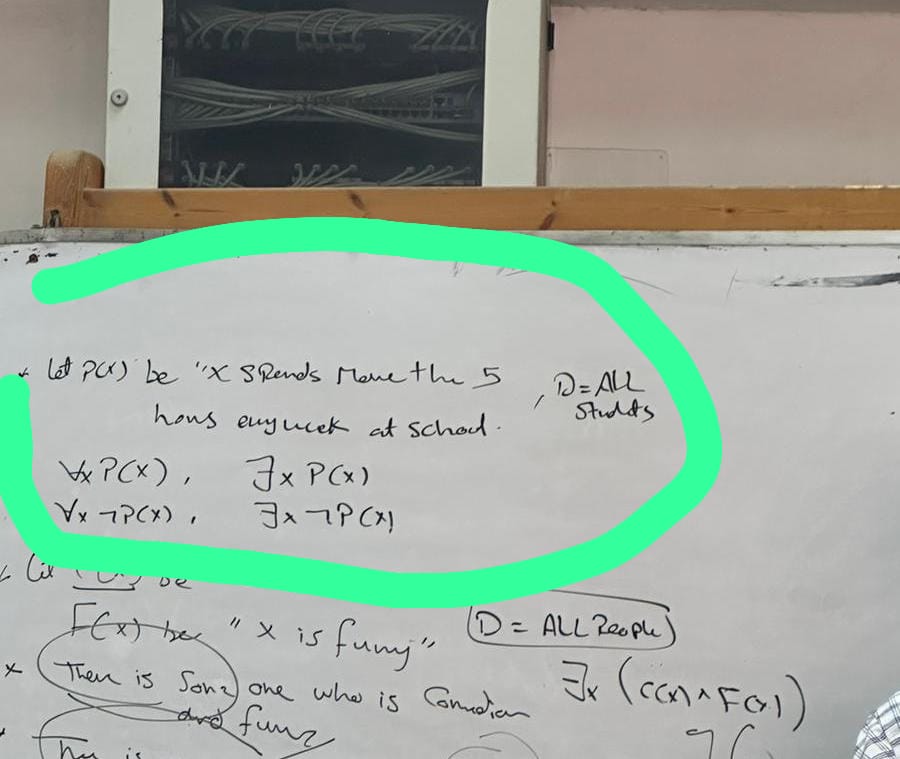 * Let P(x) be "x spends more the 5
hours every week at school. , D = ALL
Students
∀x P(x) , ∃x P(x)
∀x ¬P(x) , ∃x ¬P(x)
be
F(x) be "x is funny" D = ALL People
* There is Some one who is Comedian ∃x (C(x) ∧ F(x))
and funny
is